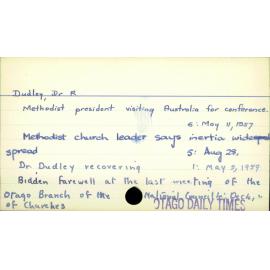 Dudley, Dr R
Methodist president visiting Australia for conference.
6: May 11, 1957
Methodist church leader says inertia widespread
5: Aug 28.
Dr Dudley recovering 1: May 5, 1959
Bidden farewell at the last meeting of the
Otago Branch of the National Council
of Churches
OTAGO DAILY TIMES